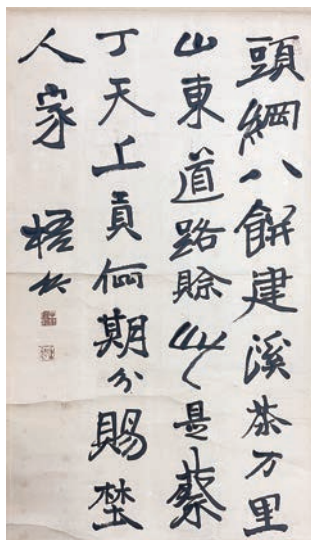 頭綱八餅建溪茶万里
山東道路賒此是蔡
丁天上貢何期分賜埜
人家 梧竹